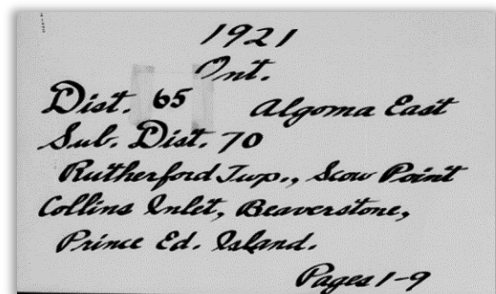 1921
Ont.
Dist. 65 Algoma East
Sub. Dist. 70
Rutherford Twp., Scow Point
Collins Inlet, Beaverstone,
Prince Ed. Island.
Pages 1-9